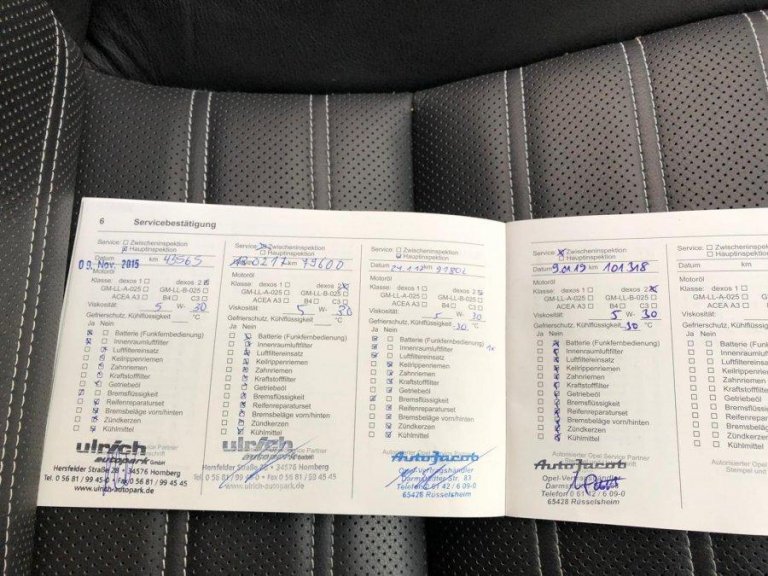 6 Servicebestätigung
Service: Zwischeninspektion
Hauptinspektion
Datum 09. Nov. 2015 km 43565
Motoröl
Klasse: dexos 1 dexos 2
GM-LL-A-025 GM-LL-B-025
ACEA A3 B4 C3
Viskosität: 5 W- 30
Gefrierschutz, Kühlflüssigkeit °C
Ja Nein
Batterie (Funkfernbedienung)
Innenraumluftfilter
Luftfiltereinsatz
Keilrippenriemen
Zahnriemen
Kraftstofffilter
Getriebeöl
Bremsflüssigkeit
Reifenreparaturset
Bremsbeläge vorn/hinten
Zündkerzen
Kühlmittel
ulrich
autopark GmbH
Hersfelder Straße 28 • 34576 Homberg
Tel. 0 56 81 / 99 45-0 • Fax 0 56 81 / 99 45 45
www.ulrich-autopark.de
Service: Zwischeninspektion
Hauptinspektion
km 79600
Motoröl
Klasse: dexos 1 dexos 2
GM-LL-A-025 GM-LL-B-025
ACEA A3 B4 C3
Viskosität: 5 W- 30
Gefrierschutz, Kühlflüssigkeit °C
Ja Nein
Batterie (Funkfernbedienung)
Innenraumluftfilter
Luftfiltereinsatz
Keilrippenriemen
Zahnriemen
Kraftstofffilter
Getriebeöl
Bremsflüssigkeit
Reifenreparaturset
Bremsbeläge vorn/hinten
Zündkerzen
Kühlmittel
ulrich
autopark GmbH
Hersfelder Straße 28 • 34576 Homberg
Tel. 0 56 81 / 99 45-0 • Fax 0 56 81 / 99 45 45
www.ulrich-autopark.de
Service: Zwischeninspektion
Hauptinspektion
Datum km 91802
Motoröl
Klasse: dexos 1 dexos 2
GM-LL-A-025 GM-LL-B-025
ACEA A3 B4 C3
Viskosität: 5 W- 30
Gefrierschutz, Kühlflüssigkeit
-30 °C
Ja Nein
Batterie (Funkfernbedienung)
Innenraumluftfilter 1x
Luftfiltereinsatz
Keilrippenriemen
Zahnriemen
Kraftstofffilter
Getriebeöl
Bremsflüssigkeit
Reifenreparaturset
Bremsbeläge vorn/hinten
Zündkerzen
Kühlmittel
Auto Jacob
Opel-Vertragshändler
Darmstädter Str. 83
Telefon 0 61 42 / 6 09-0
65428 Rüsselsheim
Service: Zwischeninspektion
Hauptinspektion
Datum 9.01.19 km 101318
Motoröl
Klasse: dexos 1 dexos 2
GM-LL-A-025 GM-LL-B-025
ACEA A3 B4 C3
Viskosität: 5 W- 30
Gefrierschutz, Kühlflüssigkeit 30 °C
Ja Nein
Batterie (Funkfernbedienung)
Innenraumluftfilter
Luftfiltereinsatz
Keilrippenriemen
Zahnriemen
Kraftstofffilter
Getriebeöl
Bremsflüssigkeit
Reifenreparaturset
Bremsbeläge vorn/hinten
Zündkerzen
Kühlmittel
Autorisierter Opel Service Partner
Auto Jacob
Opel-Vertragshändler
Telefon 0 61 42 / 6 09-0
65428 Rüsselsheim
Service:
Datum
Motoröl
Klasse: d
GM-LL-A
ACE
Viskosität:
Gefrierschutz
Ja Nein
Autorisierter Opel
Stempel und